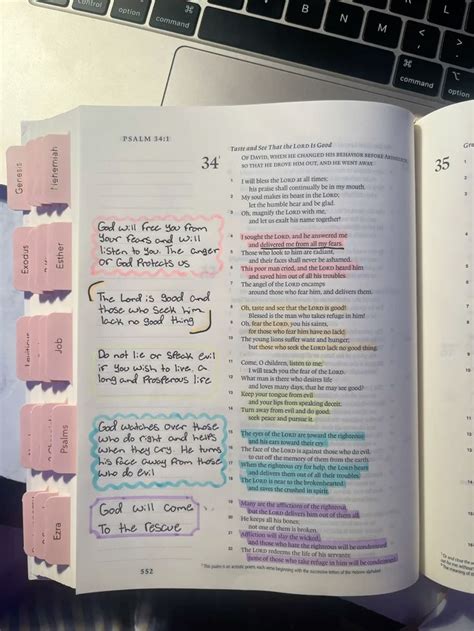 control
option
command
command
option
PSALM 34:1
Genesis
Nehemiah
Exodus
Esther
Job
Psalms
Ezra
God will free you from
your fears and will
listen to you. The anger
of God Protects us
The Lord is good and
those who seek him
lack no good thing
Do not lie or speak evil
if you wish to live a
long and Prosperous life
God watches over those
who do right and helps
when they cry. He turns
his face away from those
who do evil
God will come
To the rescue
552
Taste and See That the LORD Is Good
34
OF DAVID, WHEN HE CHANGED HIS BEHAVIOR BEFORE
SO THAT HE DROVE HIM OUT, AND HE WENT AWAY.
1 I will bless the LORD at all times;
his praise shall continually be in my mouth.
2 My soul makes its boast in the LORD;
let the humble hear and be glad.
3 Oh, magnify the LORD with me,
and let us exalt his name together!
4 I sought the LORD, and he answered me
and delivered me from all my fears.
5 Those who look to him are radiant,
and their faces shall never be ashamed.
6 This poor man cried, and the LORD heard him
and saved him out of all his troubles.
7 The angel of the LORD encamps
around those who fear him, and delivers them.
8 Oh, taste and see that the LORD is good!
Blessed is the man who takes refuge in him!
9 Oh, fear the LORD, you his saints,
for those who fear him have no lack!
10 The young lions suffer want and hunger;
but those who seek the LORD lack no good thing.
11 Come, O children, listen to me;
I will teach you the fear of the LORD.
12 What man is there who desires life
and loves many days, that he may see good?
13 Keep your tongue from evil
and your lips from speaking deceit.
14 Turn away from evil and do good;
seek peace and pursue it.
15 The eyes of the LORD are toward the righteous
and his ears toward their cry.
16 The face of the LORD is against those who do evil,
to cut off the memory of them from the earth.
17 When the righteous cry for help, the LORD hears
and delivers them out of all their troubles.
18 The LORD is near to the brokenhearted
and saves the crushed in spirit.
19 Many are the afflictions of the righteous,
but the LORD delivers him out of them all.
20 He keeps all his bones;
not one of them is broken.
21 Affliction will slay the wicked,
and those who hate the righteous will be condemned.
22 The LORD redeems the life of his servants;
none of those who take refuge in him will be condemned.
This psalm is an acrostic poem, each verse beginning with the successive letters of the Hebrew alphabet
35